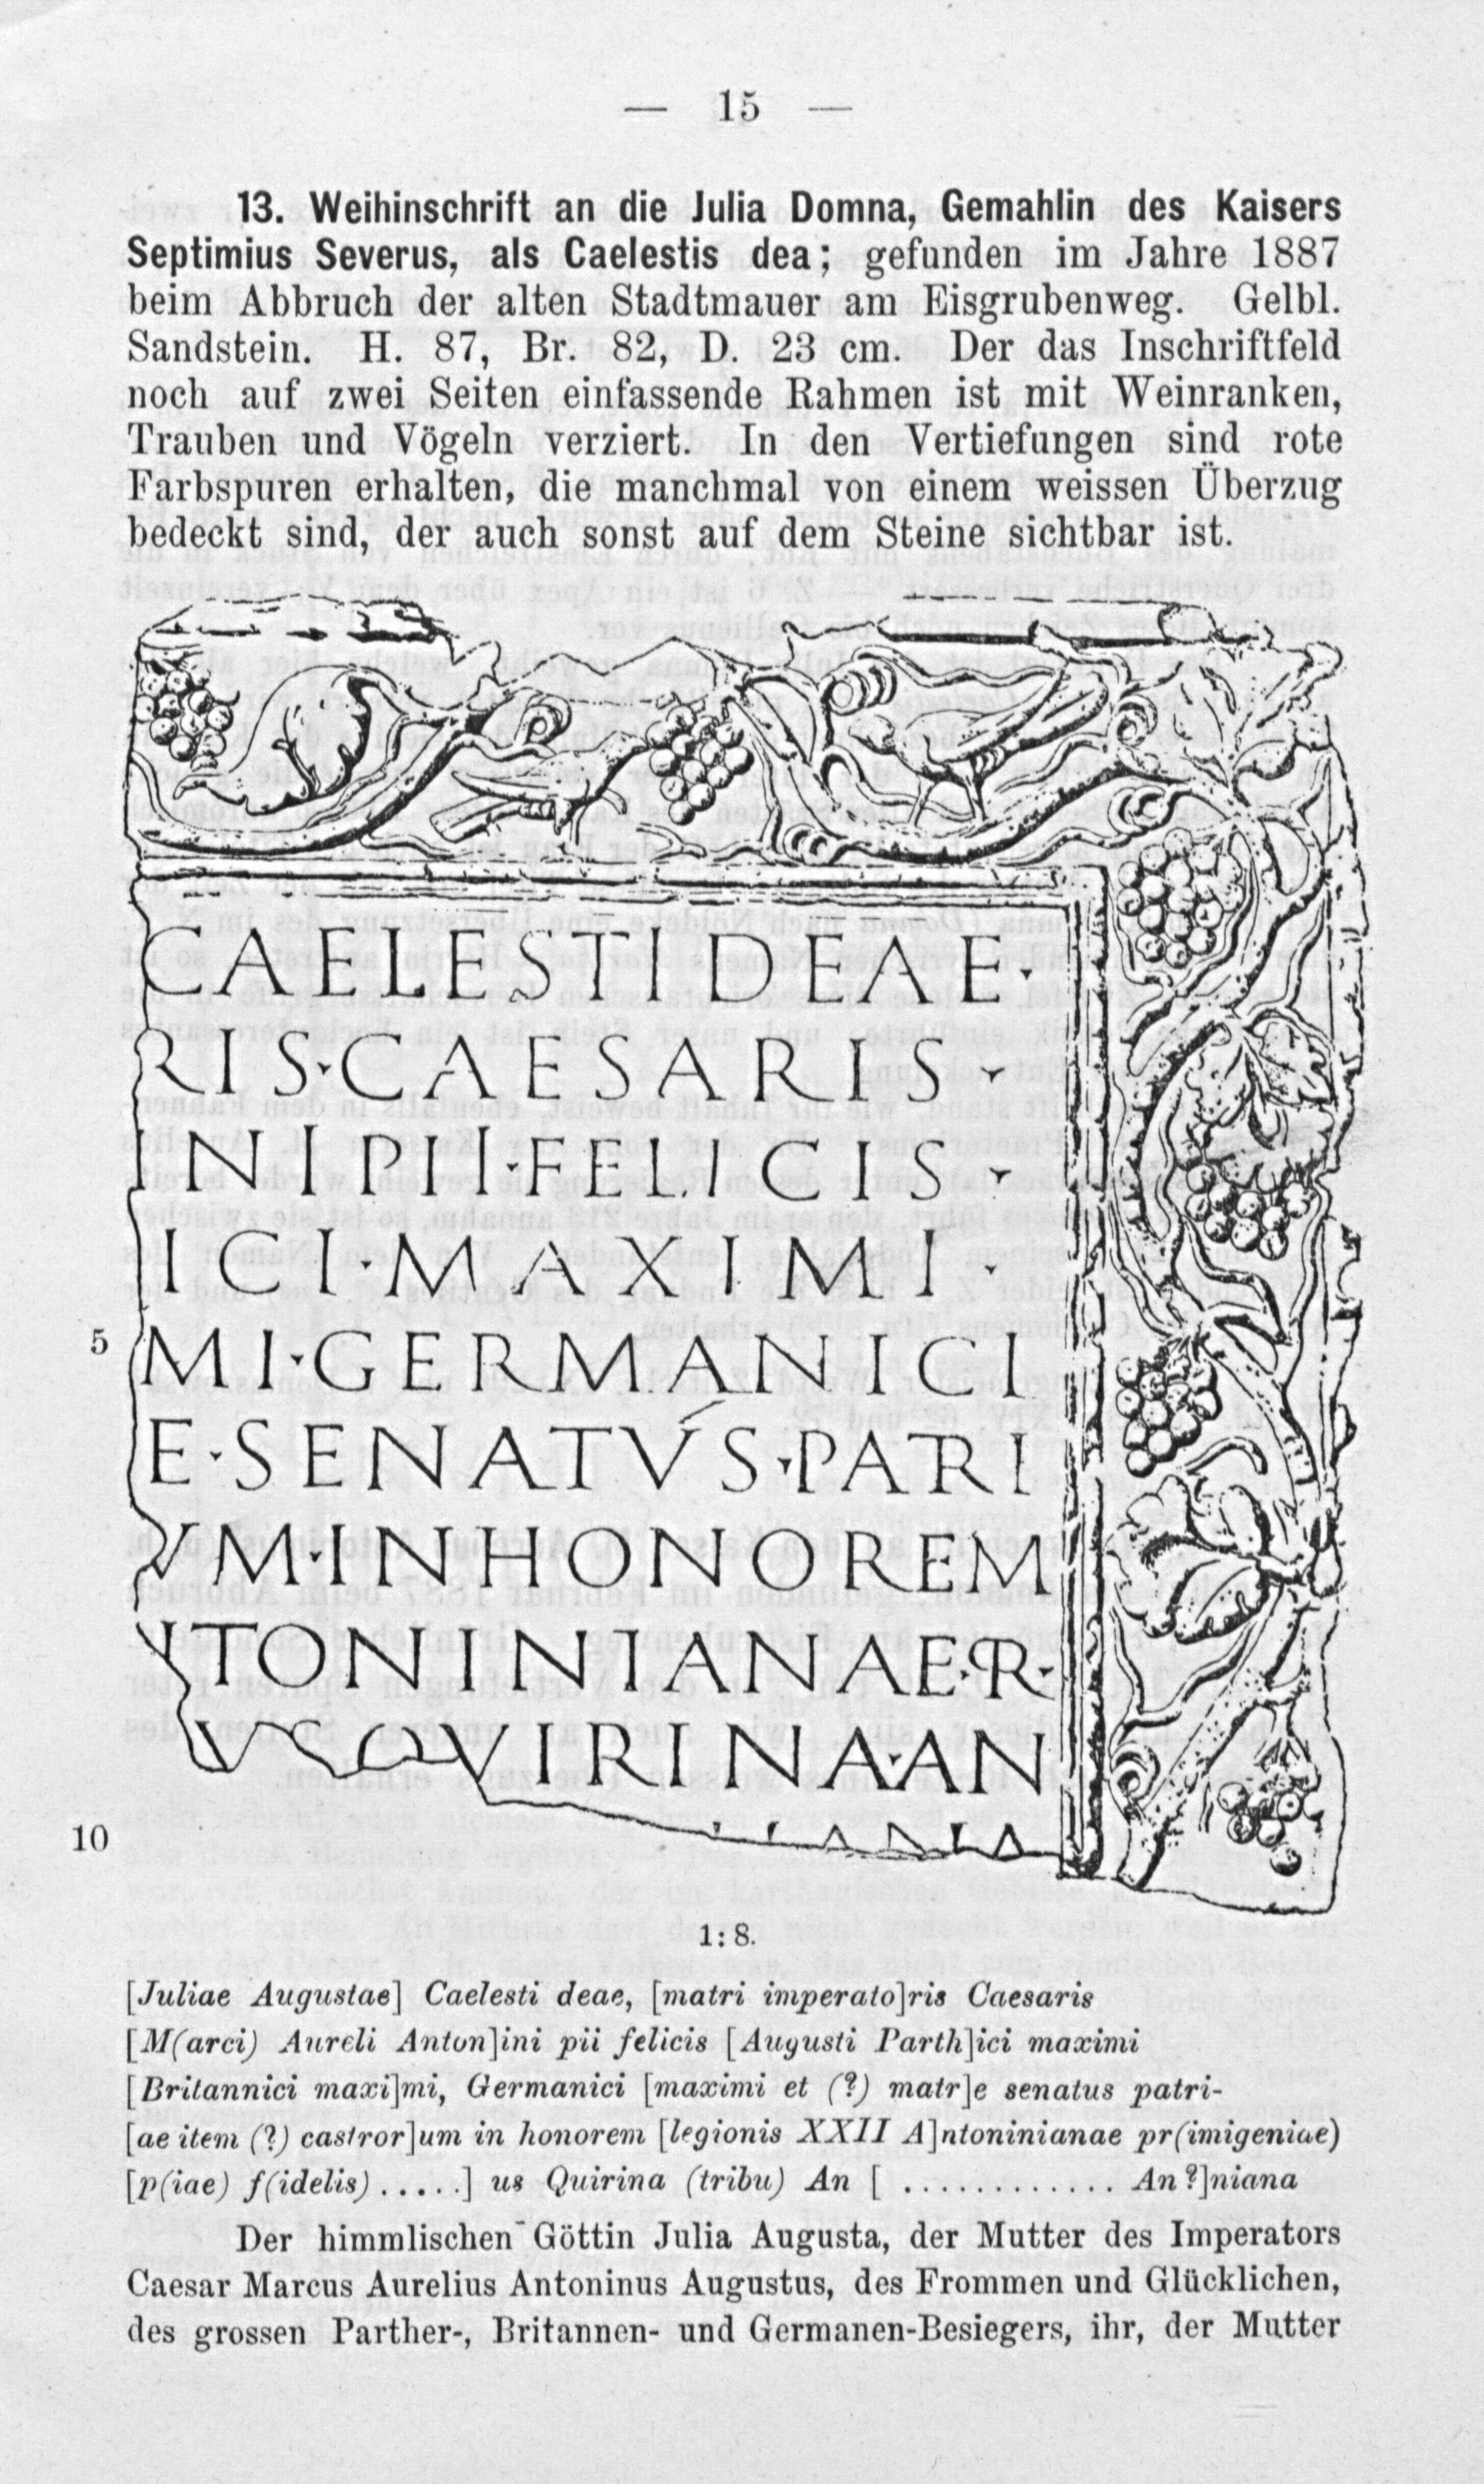 — 15 —
13. Weihinschrift an die Julia Domna, Gemahlin des Kaisers
Septimius Severus, als Caelestis dea; gefunden im Jahre 1887
beim Abbruch der alten Stadtmauer am Eisgrubenweg. Gelbl.
Sandstein. H. 87, Br. 82, D. 23 cm. Der das Inschriftfeld
noch auf zwei Seiten einfassende Rahmen ist mit Weinranken,
Trauben und Vögeln verziert. In den Vertiefungen sind rote
Farbspuren erhalten, die manchmal von einem weissen Überzug
bedeckt sind, der auch sonst auf dem Steine sichtbar ist.
CAELESTI DEAE·
RIS·CAESARIS·
INI PII·FELICIS·
ICI·MAXIMI·
5 MI·GERMANICI
E·SENATVS·PATRI
VM·INHONOREM
NTONINIANAE·PR·
VS QVIRINA·AN
10
1:8.
[Juliae Augustae] Caelesti deae, [matri imperato]ris Caesaris
[M(arci) Aureli Anton]ini pii felicis [Augusti Parth]ici maximi
[Britannici maxi]mi, Germanici [maximi et (?) matr]e senatus patri-
[ae item (?) castror]um in honorem [legionis XXII A]ntoninianae pr(imigeniae)
[p(iae) f(idelis) .....] us Quirina (tribu) An [ ............ An?]niana
Der himmlischen Göttin Julia Augusta, der Mutter des Imperators
Caesar Marcus Aurelius Antoninus Augustus, des Frommen und Glücklichen,
des grossen Parther-, Britannen- und Germanen-Besiegers, ihr, der Mutter